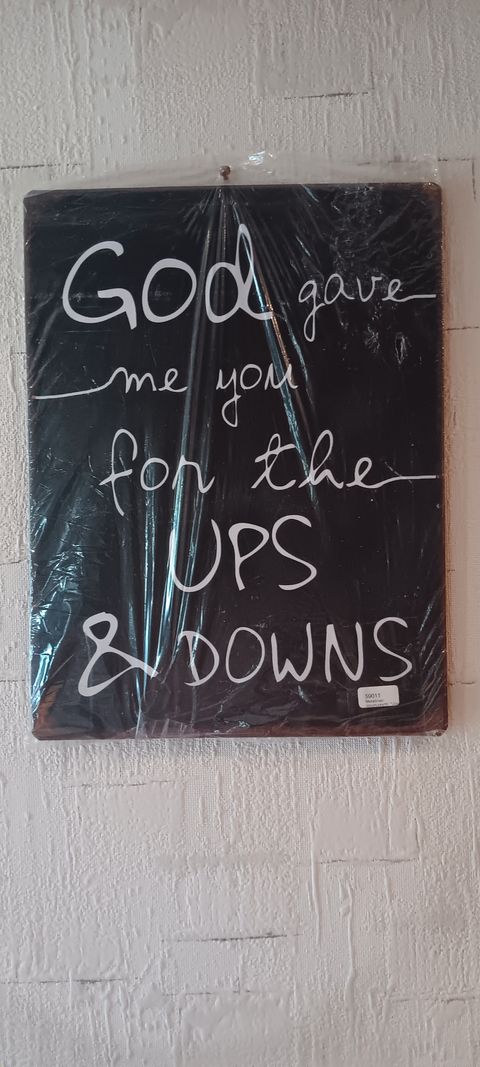 God gave
me you
for the
UPS
& DOWNS
59011